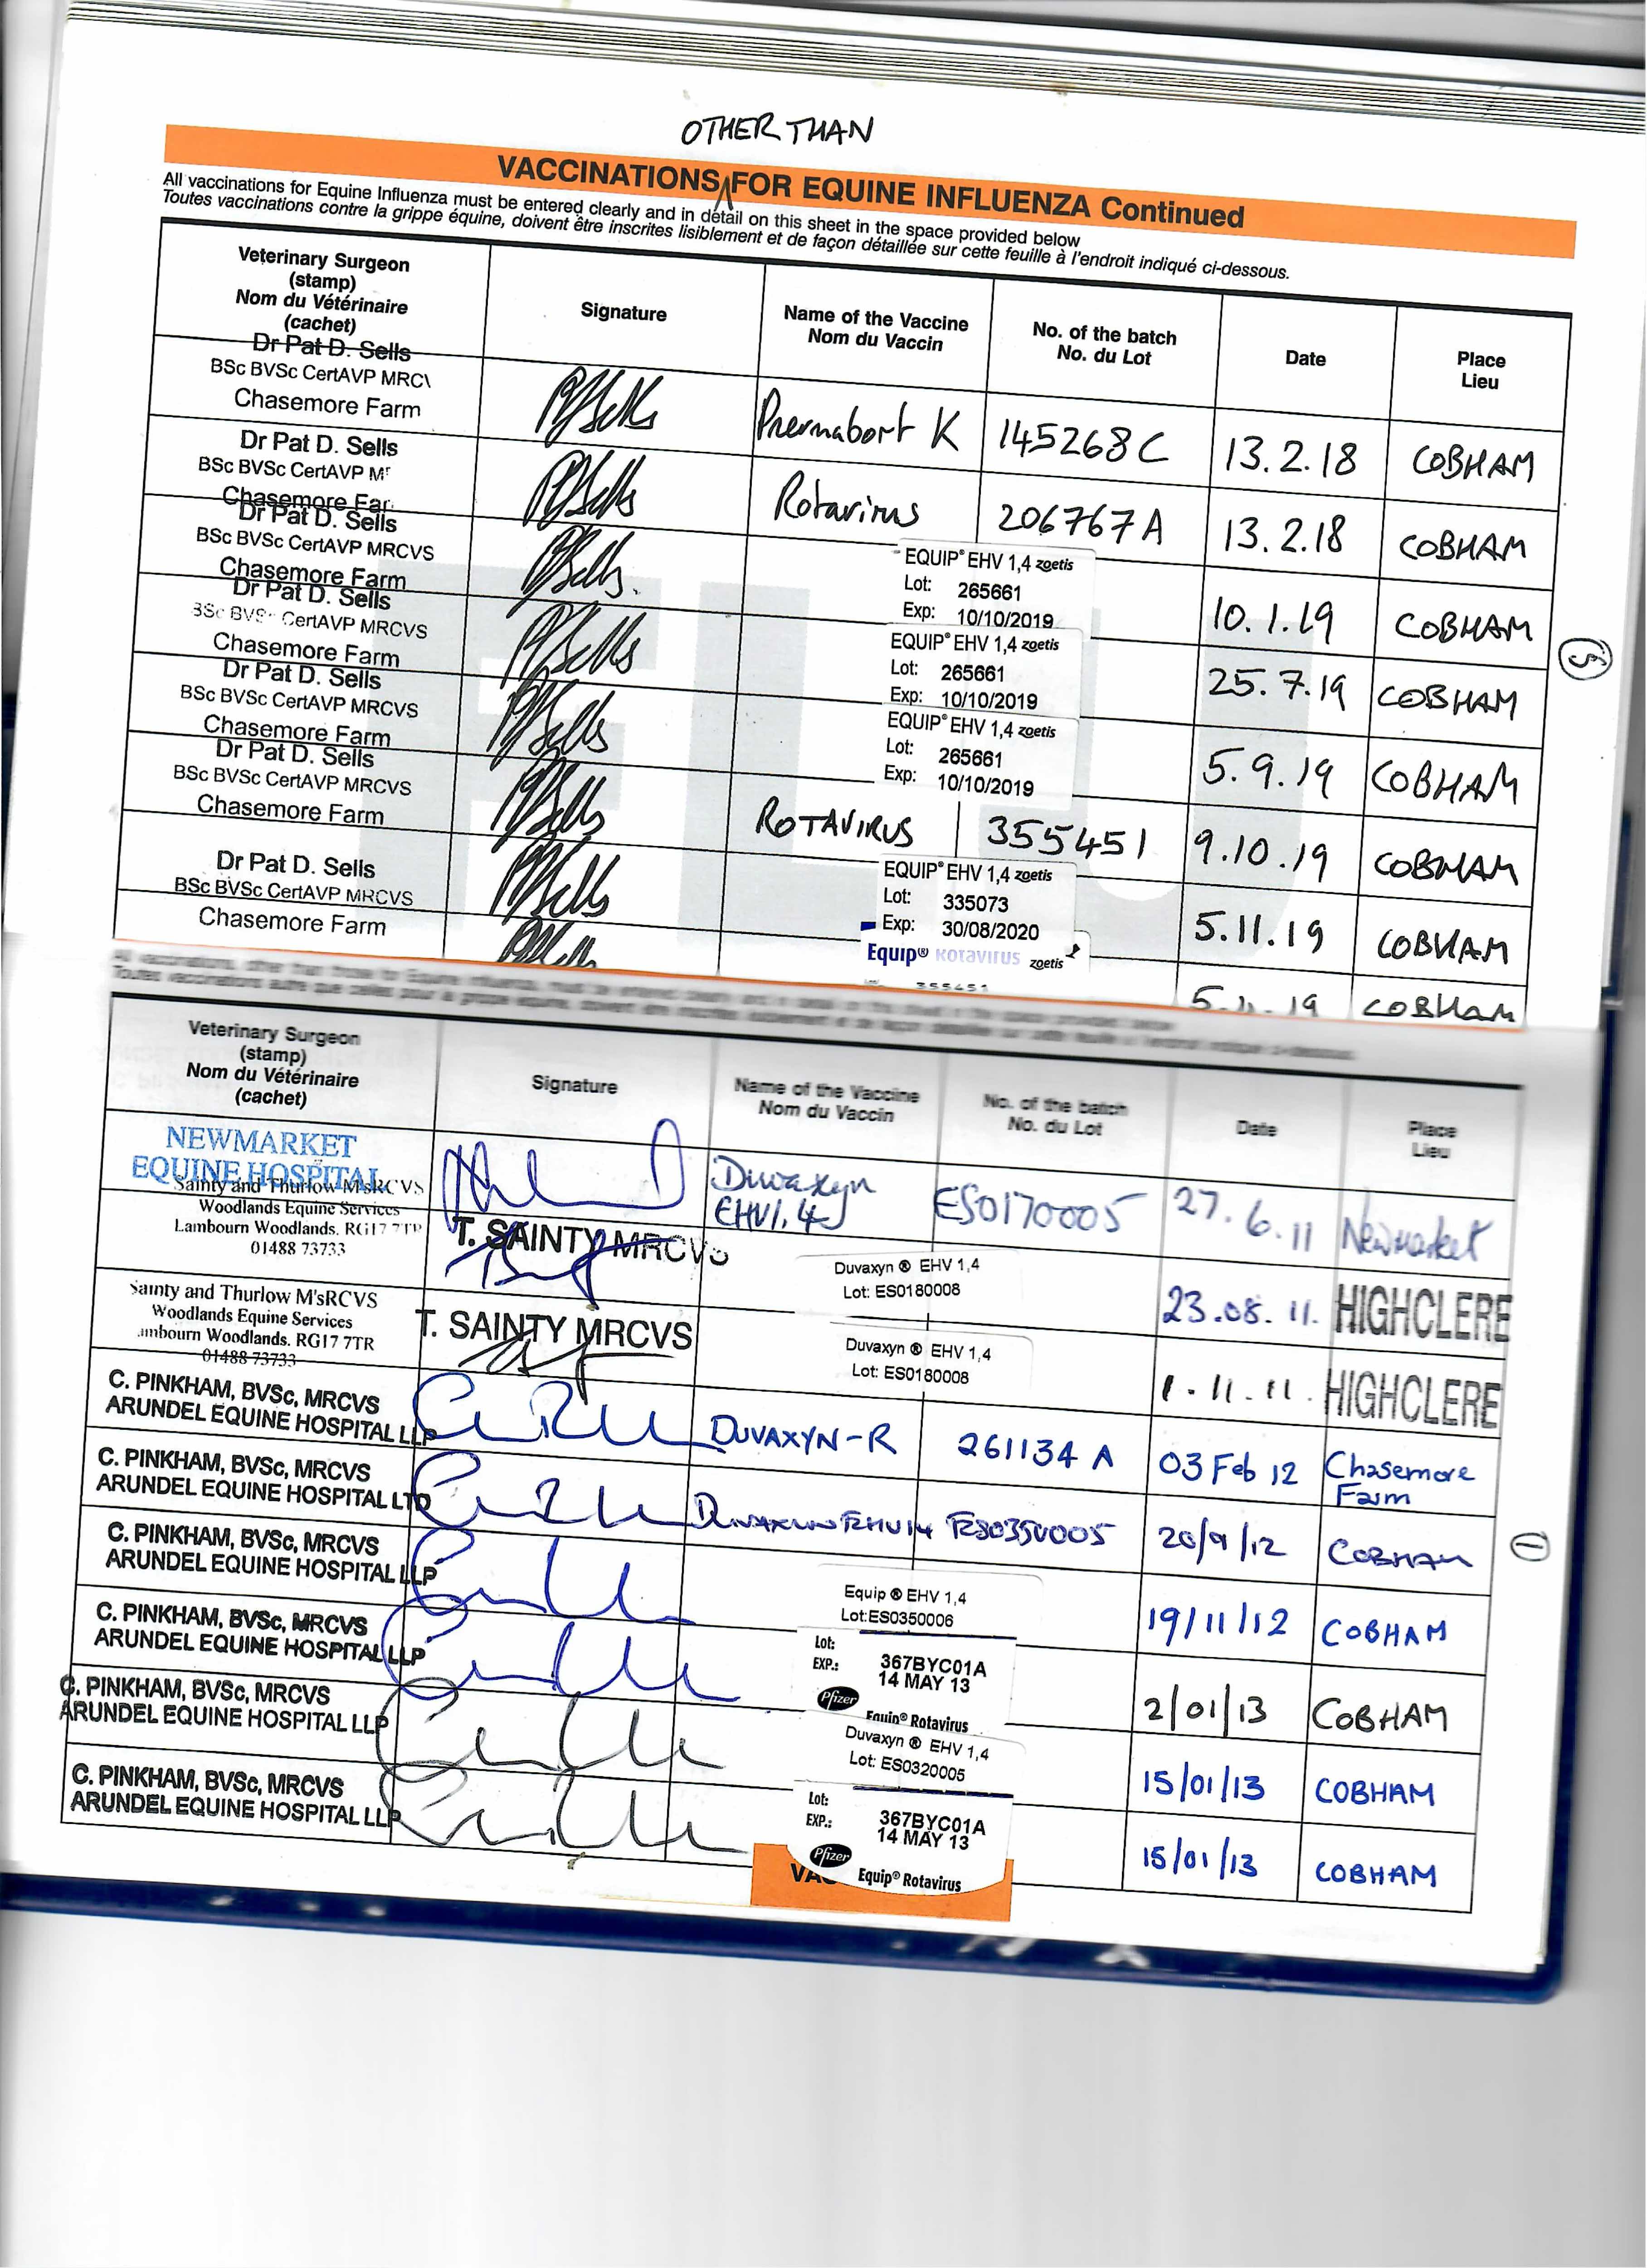 OTHER THAN
VACCINATIONS FOR EQUINE INFLUENZA Continued
All vaccinations for Equine Influenza must be entered clearly and in detail on this sheet in the space provided below
Toutes vaccinations contre la grippe équine, doivent être inscrites lisiblement et de façon détaillée sur cette feuille à l'endroit indiqué ci-dessous.
Veterinary Surgeon
(stamp)
Nom du Vétérinaire
(cachet)
Signature
Name of the Vaccine
Nom du Vaccin
No. of the batch
No. du Lot
Date
Place
Lieu
Dr Pat D. Sells
BSc BVSc CertAVP MRC
Chasemore Farm
Pnermabort K 145268C 13.2.18 COBHAM
Dr Pat D. Sells
BSc BVSc CertAVP M
Chasemore Far
Rotavirus 206767A 13.2.18 COBHAM
Dr Pat D. Sells
BSc BVSc CertAVP MRCVS
Chasemore Farm
EQUIP® EHV 1,4 zoetis
Lot: 265661
Exp: 10/10/2019
10.1.19 COBHAM
Dr Pat D. Sells
BSc BVSc CertAVP MRCVS
Chasemore Farm
EQUIP® EHV 1,4 zoetis
Lot: 265661
Exp: 10/10/2019
25.7.19 COBHAM
5
Dr Pat D. Sells
BSc BVSc CertAVP MRCVS
Chasemore Farm
EQUIP® EHV 1,4 zoetis
Lot: 265661
Exp: 10/10/2019
5.9.19 COBHAM
Dr Pat D. Sells
BSc BVSc CertAVP MRCVS
Chasemore Farm
ROTAVIRUS 355451 9.10.19 COBHAM
Dr Pat D. Sells
BSc BVSc CertAVP MRCVS
Chasemore Farm
EQUIP® EHV 1,4 zoetis
Lot: 335073
Exp: 30/08/2020
5.11.19 COBHAM
Equip® Rotavirus zoetis
355451
5.11.19 COBHAM
Veterinary Surgeon
(stamp)
Nom du Vétérinaire
(cachet)
Signature
Name of the Vaccine
Nom du Vaccin
No. of the batch
No. du Lot
Date
Place
Lieu
NEWMARKET
EQUINE HOSPITAL
Duvaxyn
EHV1,4
ES0170005 27.6.11 Newmarket
Sainty and Thurlow MsRCVS
Woodlands Equine Services
Lambourn Woodlands. RG17 7TR
01488 73733
T. SAINTY MRCVS
Duvaxyn ® EHV 1,4
Lot: ES0180008
23.08.11. HIGHCLERE
Sainty and Thurlow M'sRCVS
Woodlands Equine Services
ambourn Woodlands. RG17 7TR
01488 73733
T. SAINTY MRCVS
Duvaxyn ® EHV 1,4
Lot: ES0180008
1.11.11. HIGHCLERE
C. PINKHAM, BVSc, MRCVS
ARUNDEL EQUINE HOSPITAL LLP
DUVAXYN-R 261134 A 03 Feb 12 Chasemore
Farm
C. PINKHAM, BVSc, MRCVS
ARUNDEL EQUINE HOSPITAL LTD
DUVAXYN EHV14 ES0350005 20/9/12 COBHAM
1
C. PINKHAM, BVSc, MRCVS
ARUNDEL EQUINE HOSPITAL LLP
Equip ® EHV 1,4
Lot:ES0350006
19/11/12 COBHAM
C. PINKHAM, BVSc, MRCVS
ARUNDEL EQUINE HOSPITAL LLP
Lot: 367BYC01A
EXP.: 14 MAY 13
Pfizer
Equip® Rotavirus
2/01/13 COBHAM
C. PINKHAM, BVSc, MRCVS
ARUNDEL EQUINE HOSPITAL LLP
Duvaxyn ® EHV 1,4
Lot: ES0320005
15/01/13 COBHAM
C. PINKHAM, BVSc, MRCVS
ARUNDEL EQUINE HOSPITAL LLP
Lot: 367BYC01A
EXP.: 14 MAY 13
Pfizer
Equip® Rotavirus
15/01/13 COBHAM